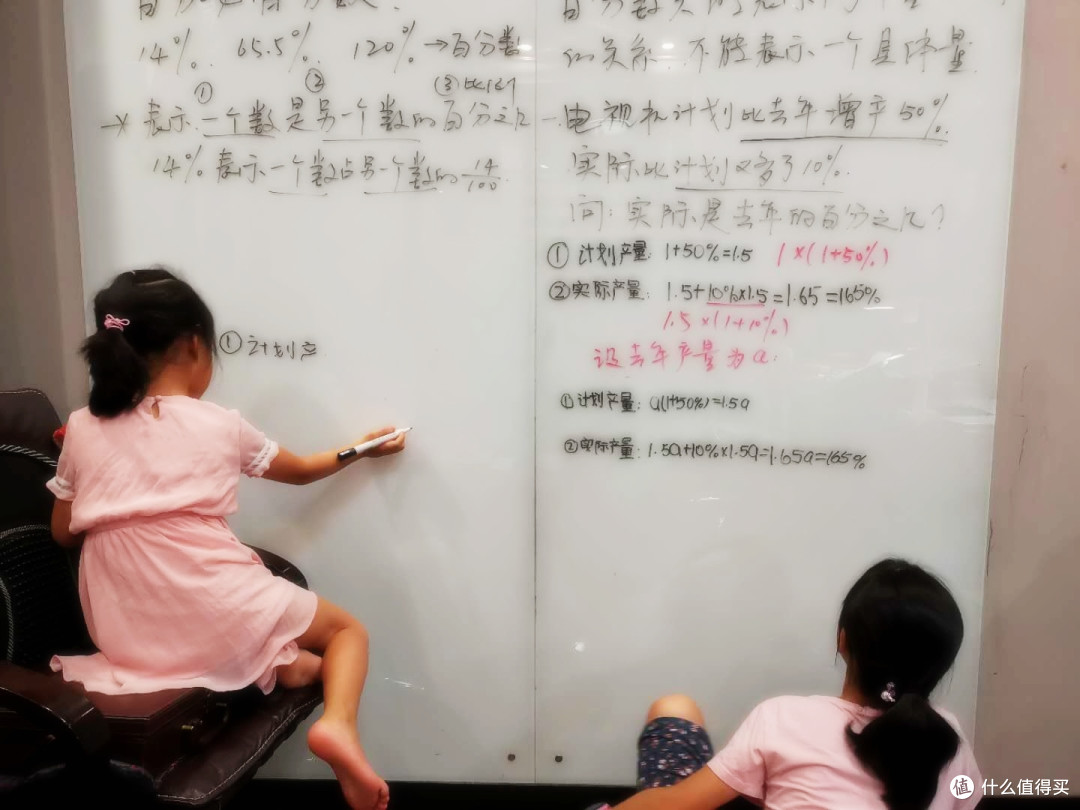 14%. 65.5%. 120%. →百分数
① ② (3) 比1大
表示 一个数是另一个数的百分之几
14%表示一个数占另一个数的 14/100
①计划产
百分数只
的关系.不能表示一个具体量.
一.电视机计划比去年增产50%.
实际比计划又多了10%.
问:实际是去年的百分之几?
①计划产量:1+50%=1.5 1×(1+50%)
②实际产量:1.5+10%×1.5=1.65=165%
1.5×(1+10%)
设去年产量为a:
①计划产量:a(1+50%)=1.5a
②实际产量:1.5a+10%×1.5a=1.65a=165%
值 什么值得买